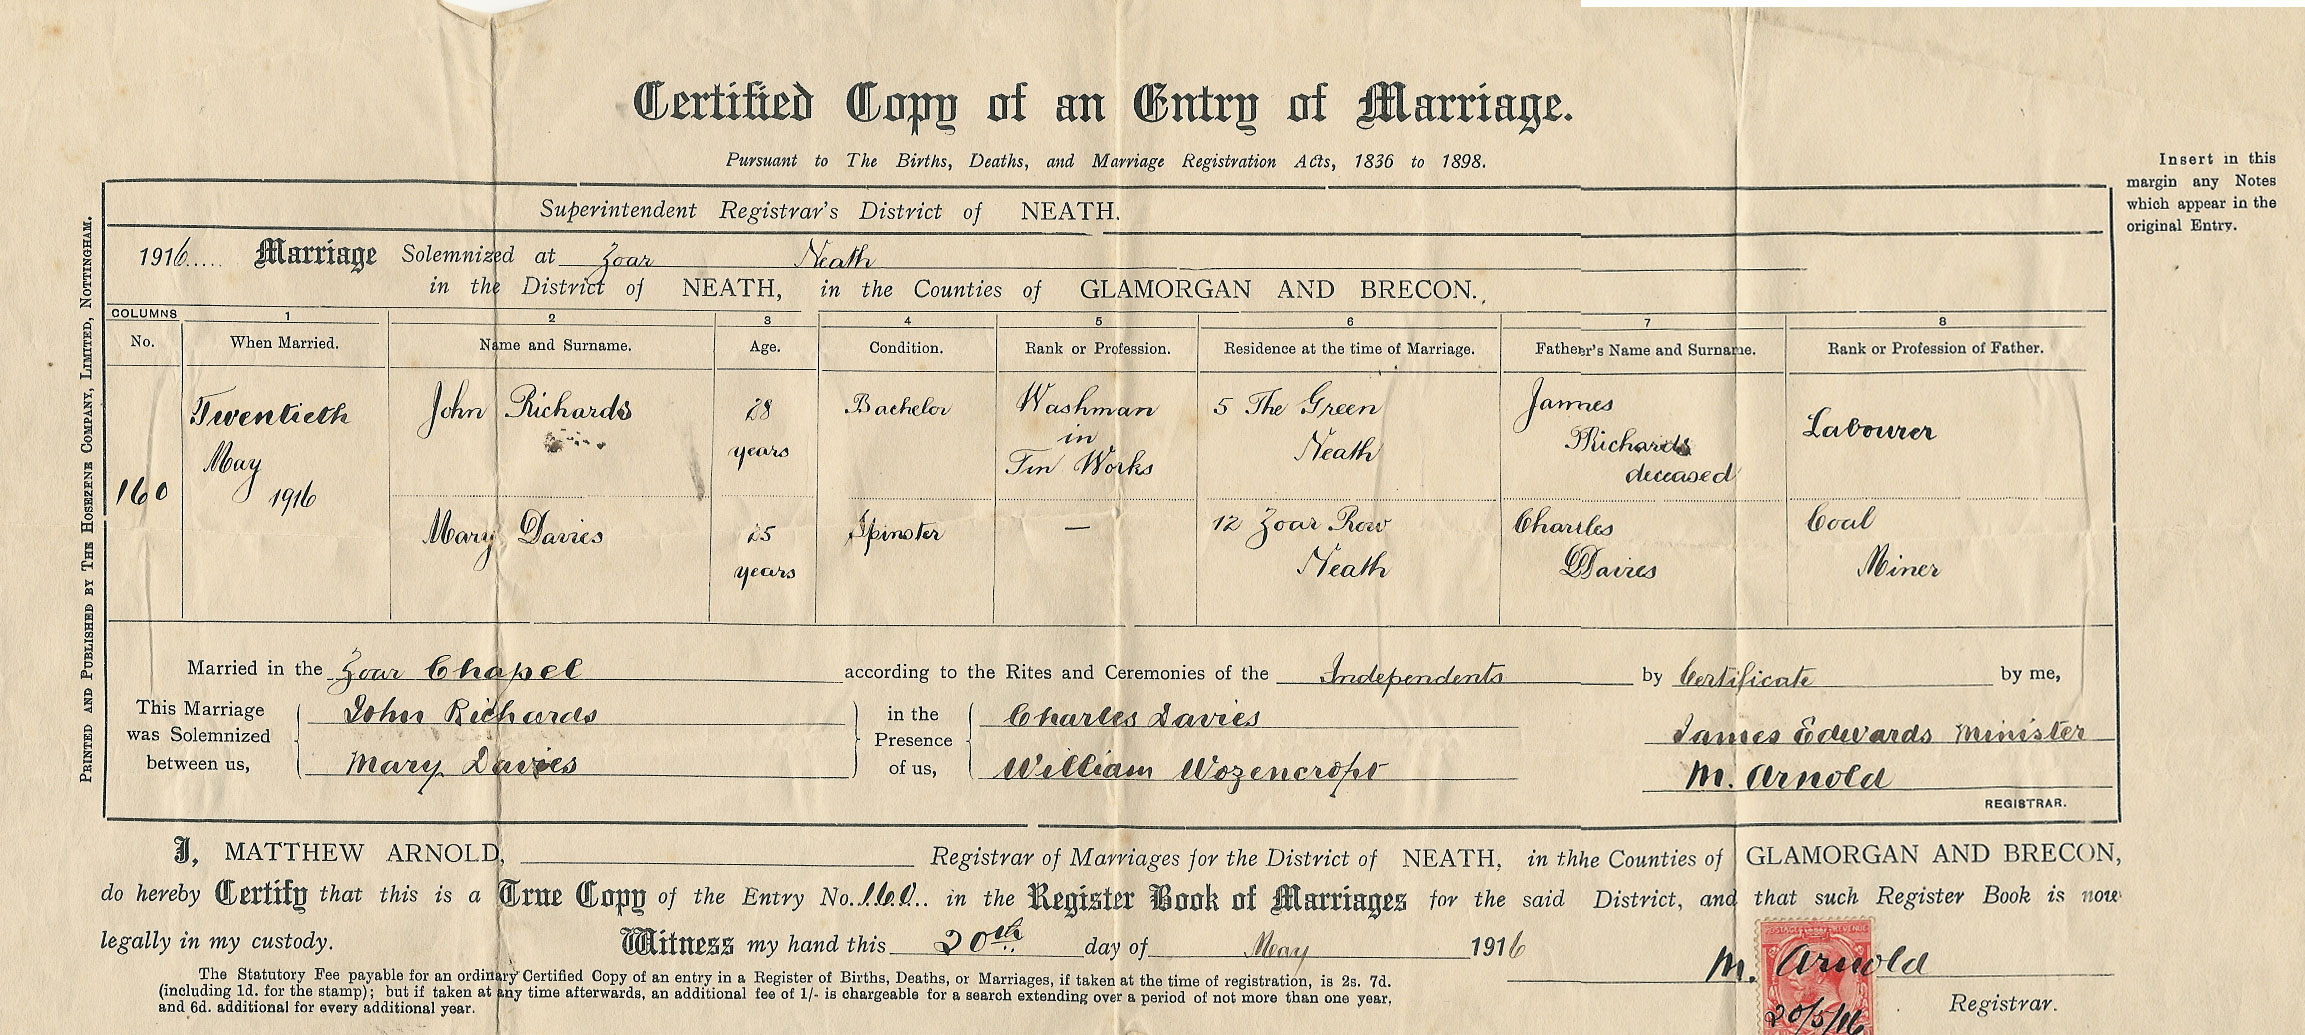 Certified Copy of an Entry of Marriage.
Pursuant to The Births, Deaths, and Marriage Registration Acts, 1836 to 1898.
Insert in this
margin any Notes
which appear in the
original Entry.
PRINTED AND PUBLISHED BY THE HOSEZENE COMPANY, LIMITED, NOTTINGHAM.
Superintendent Registrar's District of NEATH.
1916..... Marriage Solemnized at Zoar Neath
in the District of NEATH, in the Counties of GLAMORGAN AND BRECON.
COLUMNS 1 2 3 4 5 6 7 8
No. When Married. Name and Surname. Age. Condition. Rank or Profession. Residence at the time of Marriage. Father's Name and Surname. Rank or Profession of Father.
160
Twentieth
May
1916
John Richards
28
years
Bachelor
Washman
in
Tin Works
5 The Green
Neath
James
Richards
deceased
Labourer
Mary Davies
25
years
Spinster
—
12 Zoar Row
Neath
Charles
Davies
Coal
Miner
Married in the Zoar Chapel according to the Rites and Ceremonies of the Independents by Certificate by me,
This Marriage
was Solemnized
between us,
John Richards
Mary Davies
in the
Presence
of us,
Charles Davies
William Wozencroft
James Edwards Minister
M. Arnold
REGISTRAR.
I, MATTHEW ARNOLD, Registrar of Marriages for the District of NEATH, in thhe Counties of GLAMORGAN AND BRECON,
do hereby Certify that this is a True Copy of the Entry No. 160 in the Register Book of Marriages for the said District, and that such Register Book is now
legally in my custody. Witness my hand this 20th day of May 1916
M. Arnold
Registrar.
20/5/16
The Statutory Fee payable for an ordinary Certified Copy of an entry in a Register of Births, Deaths, or Marriages, if taken at the time of registration, is 2s. 7d.
(including 1d. for the stamp); but if taken at any time afterwards, an additional fee of 1/- is chargeable for a search extending over a period of not more than one year,
and 6d. additional for every additional year.